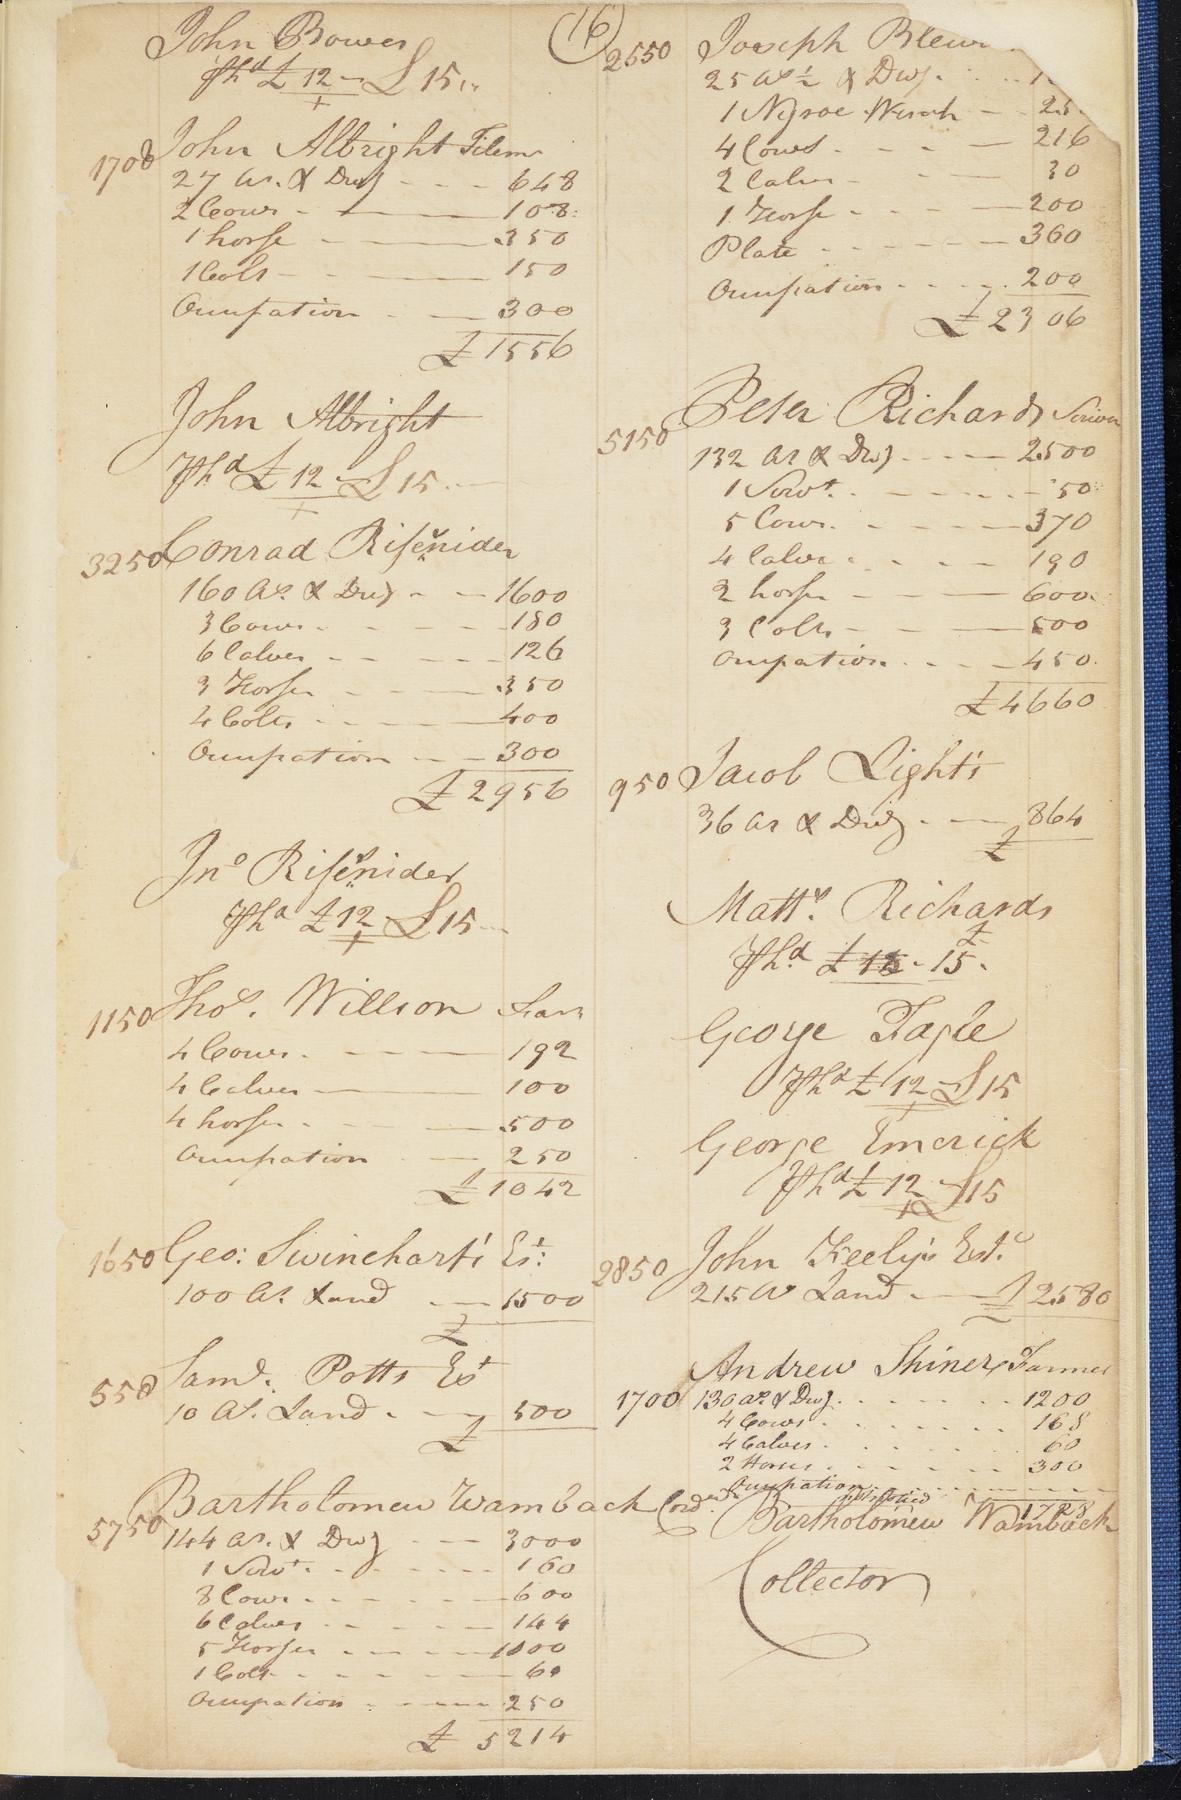 (16)
John Bower
Pr hd £ 12 - £ 15
1700 John Albright
27 As. & Dwg - - - 648
2 Cows - - - 108
1 horse - - - 350
1 Colt - - - 150
Occupation - - 300
£ 1556
John Albright
Pr hd £ 12 - £ 15
3250 Conrad Risenider
160 As. & Dwg - - 1600
3 Cows - - - 180
6 Calves - - - 126
3 Horses - - - 350
4 Colts - - - 400
Occupation - - 300
£ 2956
Jno Risenider
Pr hd £ 12 £ 15
1150 Thos. Willson
4 Cows - - - 192
4 Calves - - - 100
4 horses - - - 500
Occupation - - 250
£ 1042
1650 Geo: Swinehart's Est:
100 As. Land - - 1500
£
550 Saml. Potts Est
10 As. Land - - 500
£
5750 Bartholomew Wamback Cord
144 As. & Dwg - - 3000
1 Servt. - - - 160
8 Cows - - - 600
6 Calves - - - 144
5 Horses - - - 1000
1 Colt - - - 60
Occupation - - 250
£ 5214
2550 Joseph
25 As ½ & Dwg - - -
1 Negroe Wench - - 25
4 Cows - - - 216
2 Calves - - - 30
1 Horse - - - 200
Plate - - - 360
Occupation - - - 200
£ 2306
5150 Peter Richards
132 As & Dwg - - - 2500
1 Servt. - - - 50
5 Cows - - - 370
4 Calves - - - 190
2 horses - - - 600
3 Colts - - - 500
Occupation - - - 450
£ 4660
950 Jacob Light's
36 As & Dwg - - 864
£
Matts. Richards
Pr hd. £ 15.
George
Pr hd £ 12 £ 15
George Emerick
Pr hd £ 12 £ 15
2850 John Keely's Est.
215 As Land - - £ 2580
Andrew Shiner, Farmer
1700 130 As. & Dwg - - - 1200
4 Cows - - - 168
4 Calves - - - 60
2 Horses - - - 300
Occupation - - -
1728
Bartholomew Wamback
Collector